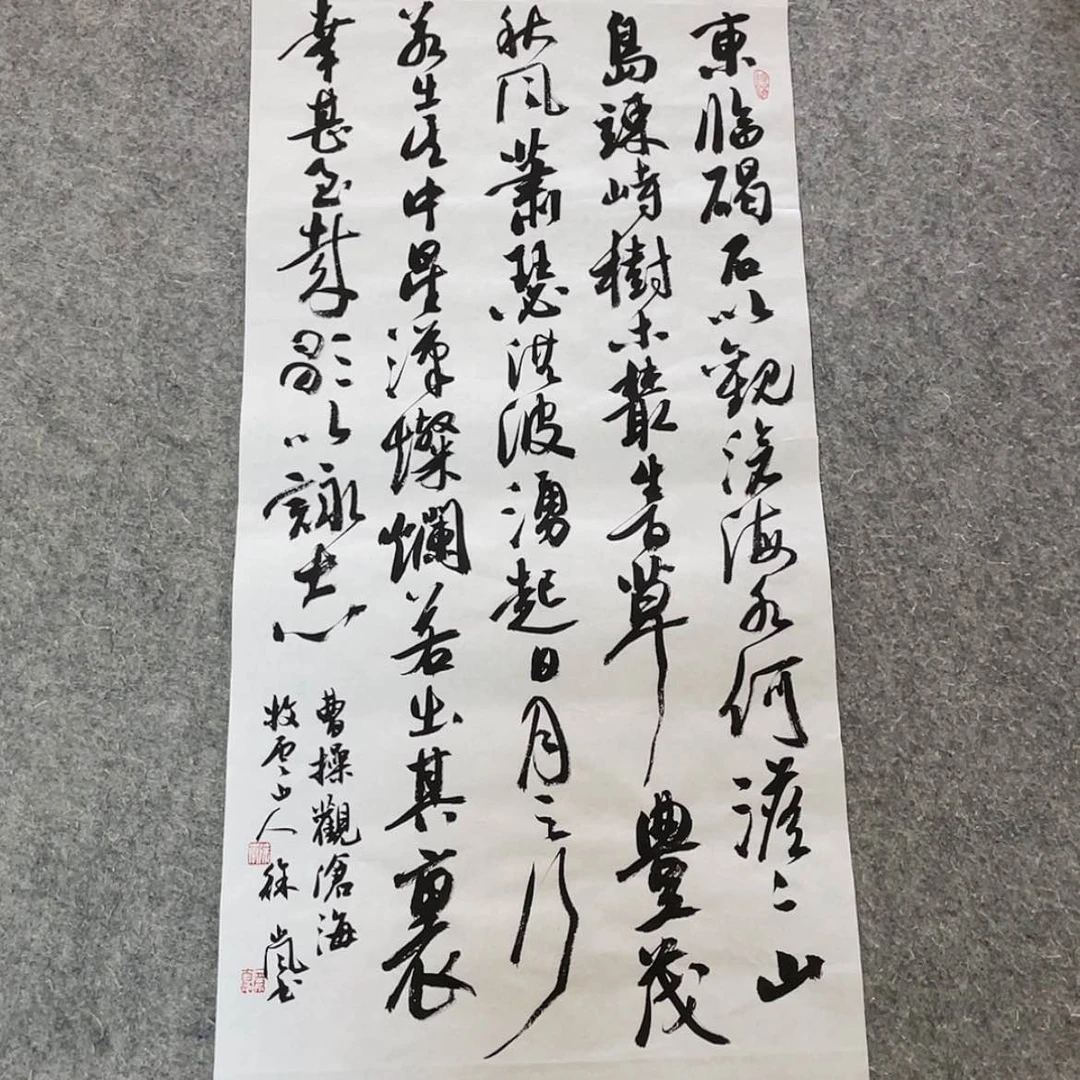 東臨碣石以觀滄海水何澹〻山
島竦峙樹木叢生百草豐茂
秋風蕭瑟洪波湧起日月之行
若出其中星漢燦爛若出其裏
幸甚至哉歌以詠志
曹操觀滄海
牧雲山人徐嵐書